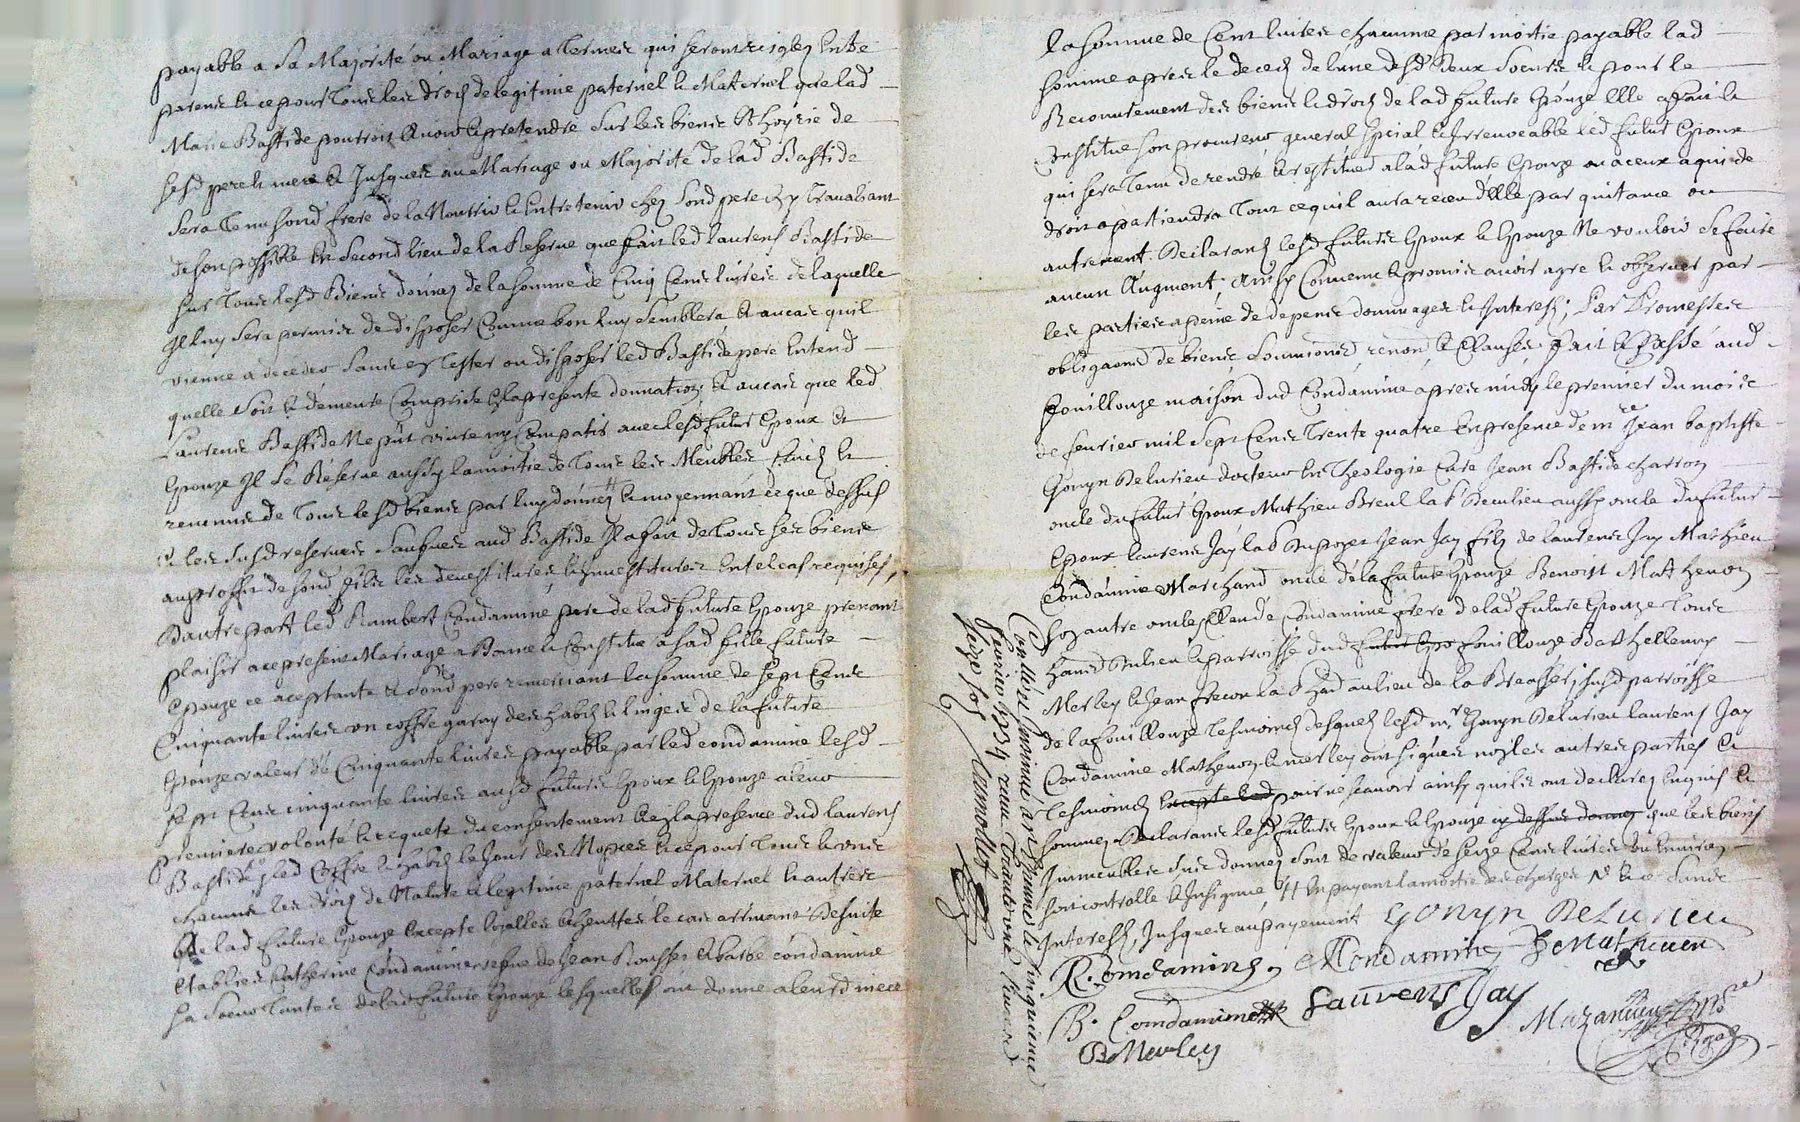 payable a sa Majorité ou Mariage a termes qui seront reiglez entre
parens et ce pour tous les droits de legitime paternel et Maternel que lad
Marie Bastide pourroit avoir et pretendre sur les biens et hoyrie de
sesd pere et mere et Jusques au Mariage ou Majorité de lad Bastide
sera tenu sond frere de la Nourrir et Entretenir chez sond pere en y travaliant
de son possible En second lieu de la Reserve que fait led laurens Bastide
sur tous lesd Biens donnez de la somme de Cinq Cens livres de laquelle
Il luy sera permis de disposer Comme bon luy semblera et au cas quil
vienne a deceder sans en tester ou disposer led Bastide pere Entend
quelle soit et demeure Comprise En la presente donnation et au cas que led
Laurens Bastide Ne put vivre ny Compatir avec lesd futurs Epoux et
Epouze Il se Reserve aussy la moitie de tous les Meubles fruits et
revenus de tous lesd biens par luy donnez et moyennant ce que dessus
et les susd reserves Saufves aud Bastide Il a fait de tous ses biens
au proffit de sond fils les devestitures et Investitures En tel cas requises,
Dautre part led Rambert Condamine pere de lad future Epouze prenant
plaisir au present Mariage a Donné et Constitué a sad fille future
Epouze ce aceptante et sond pere remerciant la somme de sept Cens
Cinquante livres un coffre garny des habits et linges de la future
Epouze valeur de Cinquante livres payable par led condamine lesd
sept Cens cinquante livres ausd futurs Epoux et Epouze a leur
premiere volonté et requete du consentement et En la presence dud laurens
Bastide et led Coffre et habits le Jour des Nopces et ce pour tous et uns
chacuns les droits de Nature et legitime paternel Maternel et autres
de lad future Epouze Excepté loyalles Escheutes le cas arrivant Desuite
Etablies Catherine Condamine vefve de Jean Rousset et Barbe Condamine
sa soeur tantes de lad future Epouze lesquelles ont donné a leurd niece
la somme de Cent livres chacune par moitie payable lad
somme apres le deces de lune desd deux soeurs et pour le
Recouvrement des biens et droits de lad future Epouze Elle a fait et
Institué son procureur general special et Irrevocable led futur Epoux
qui sera tenu de rendre et restituer a lad future Epouze ou a ceux a qui de
droit apartiendra tout ce quil aura receu delle par quitance ou
autrement Declarans lesd futurs Epoux et Epouze Ne vouloir se faire
aucun Augment, Ainsy Convenu et promis avoir agre et observer par
les parties a peine de depens dommages et Interests, Par Promesses
obligaons de biens soumissions renons et Clauses fait et Passé aud
fouillouze maison dud Condamine apres midy le premier du mois
de fevrier mil sept Cens trente quatre En presence de mre Jean baptiste
Gonyn Delurieu docteur En Theologie Cure Jean Bastide charron
oncle du futur Epoux Mathieu Breul la Sr Beaulieu aussy oncle du futur
Epoux laurens Jay lab Jean Jay fils de laurens Jay Mathieu
Condamine Marchand oncle de la future Epouze Benoist Mathevon
son autre oncle Claude Condamine frere de lad future Epouze tous
hans dud lieu et parroisse dud fouillouze Barthellemy
Merley et Jean frecon lab had au lieu de la susd parroisse
de la fouillouze tesmoins desquels lesd mre Gonyn Delurieu laurens Jay
Condamine Mathevon et merley ont signés non les autres parties et
tesmoins Excepte led pour ne scavoir ainsy quils ont declarez Enquis et
sommez Declarans lesd futurs Epoux et Epouze cy dessus donnez que les biens
Immeubles sus donnez sont de valeur de seize Cens livres ou Environ
soit controllé et Insinué, En payant la moitie des charges et Sans
Interests Jusques au payement Gonyn Delurieu
R. Condamine MCondamine Be Mathevon
B. Condamine Laurens Jay
B Merley
Controllé et Insinué a St Etienne le cinquieme
fevrier 1734 receu livres
seize sols